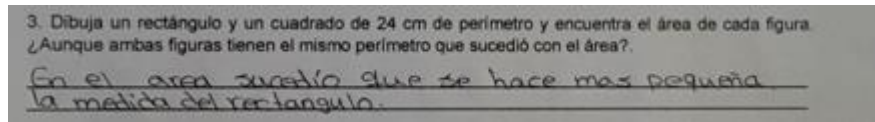 3. Dibuja un rectángulo y un cuadrado de 24 cm de perímetro y encuentra el área de cada figura.
¿Aunque ambas figuras tienen el mismo perímetro que sucedió con el área?.
En el area sucedío que se hace mas pequeña
la medida del rectangulo.